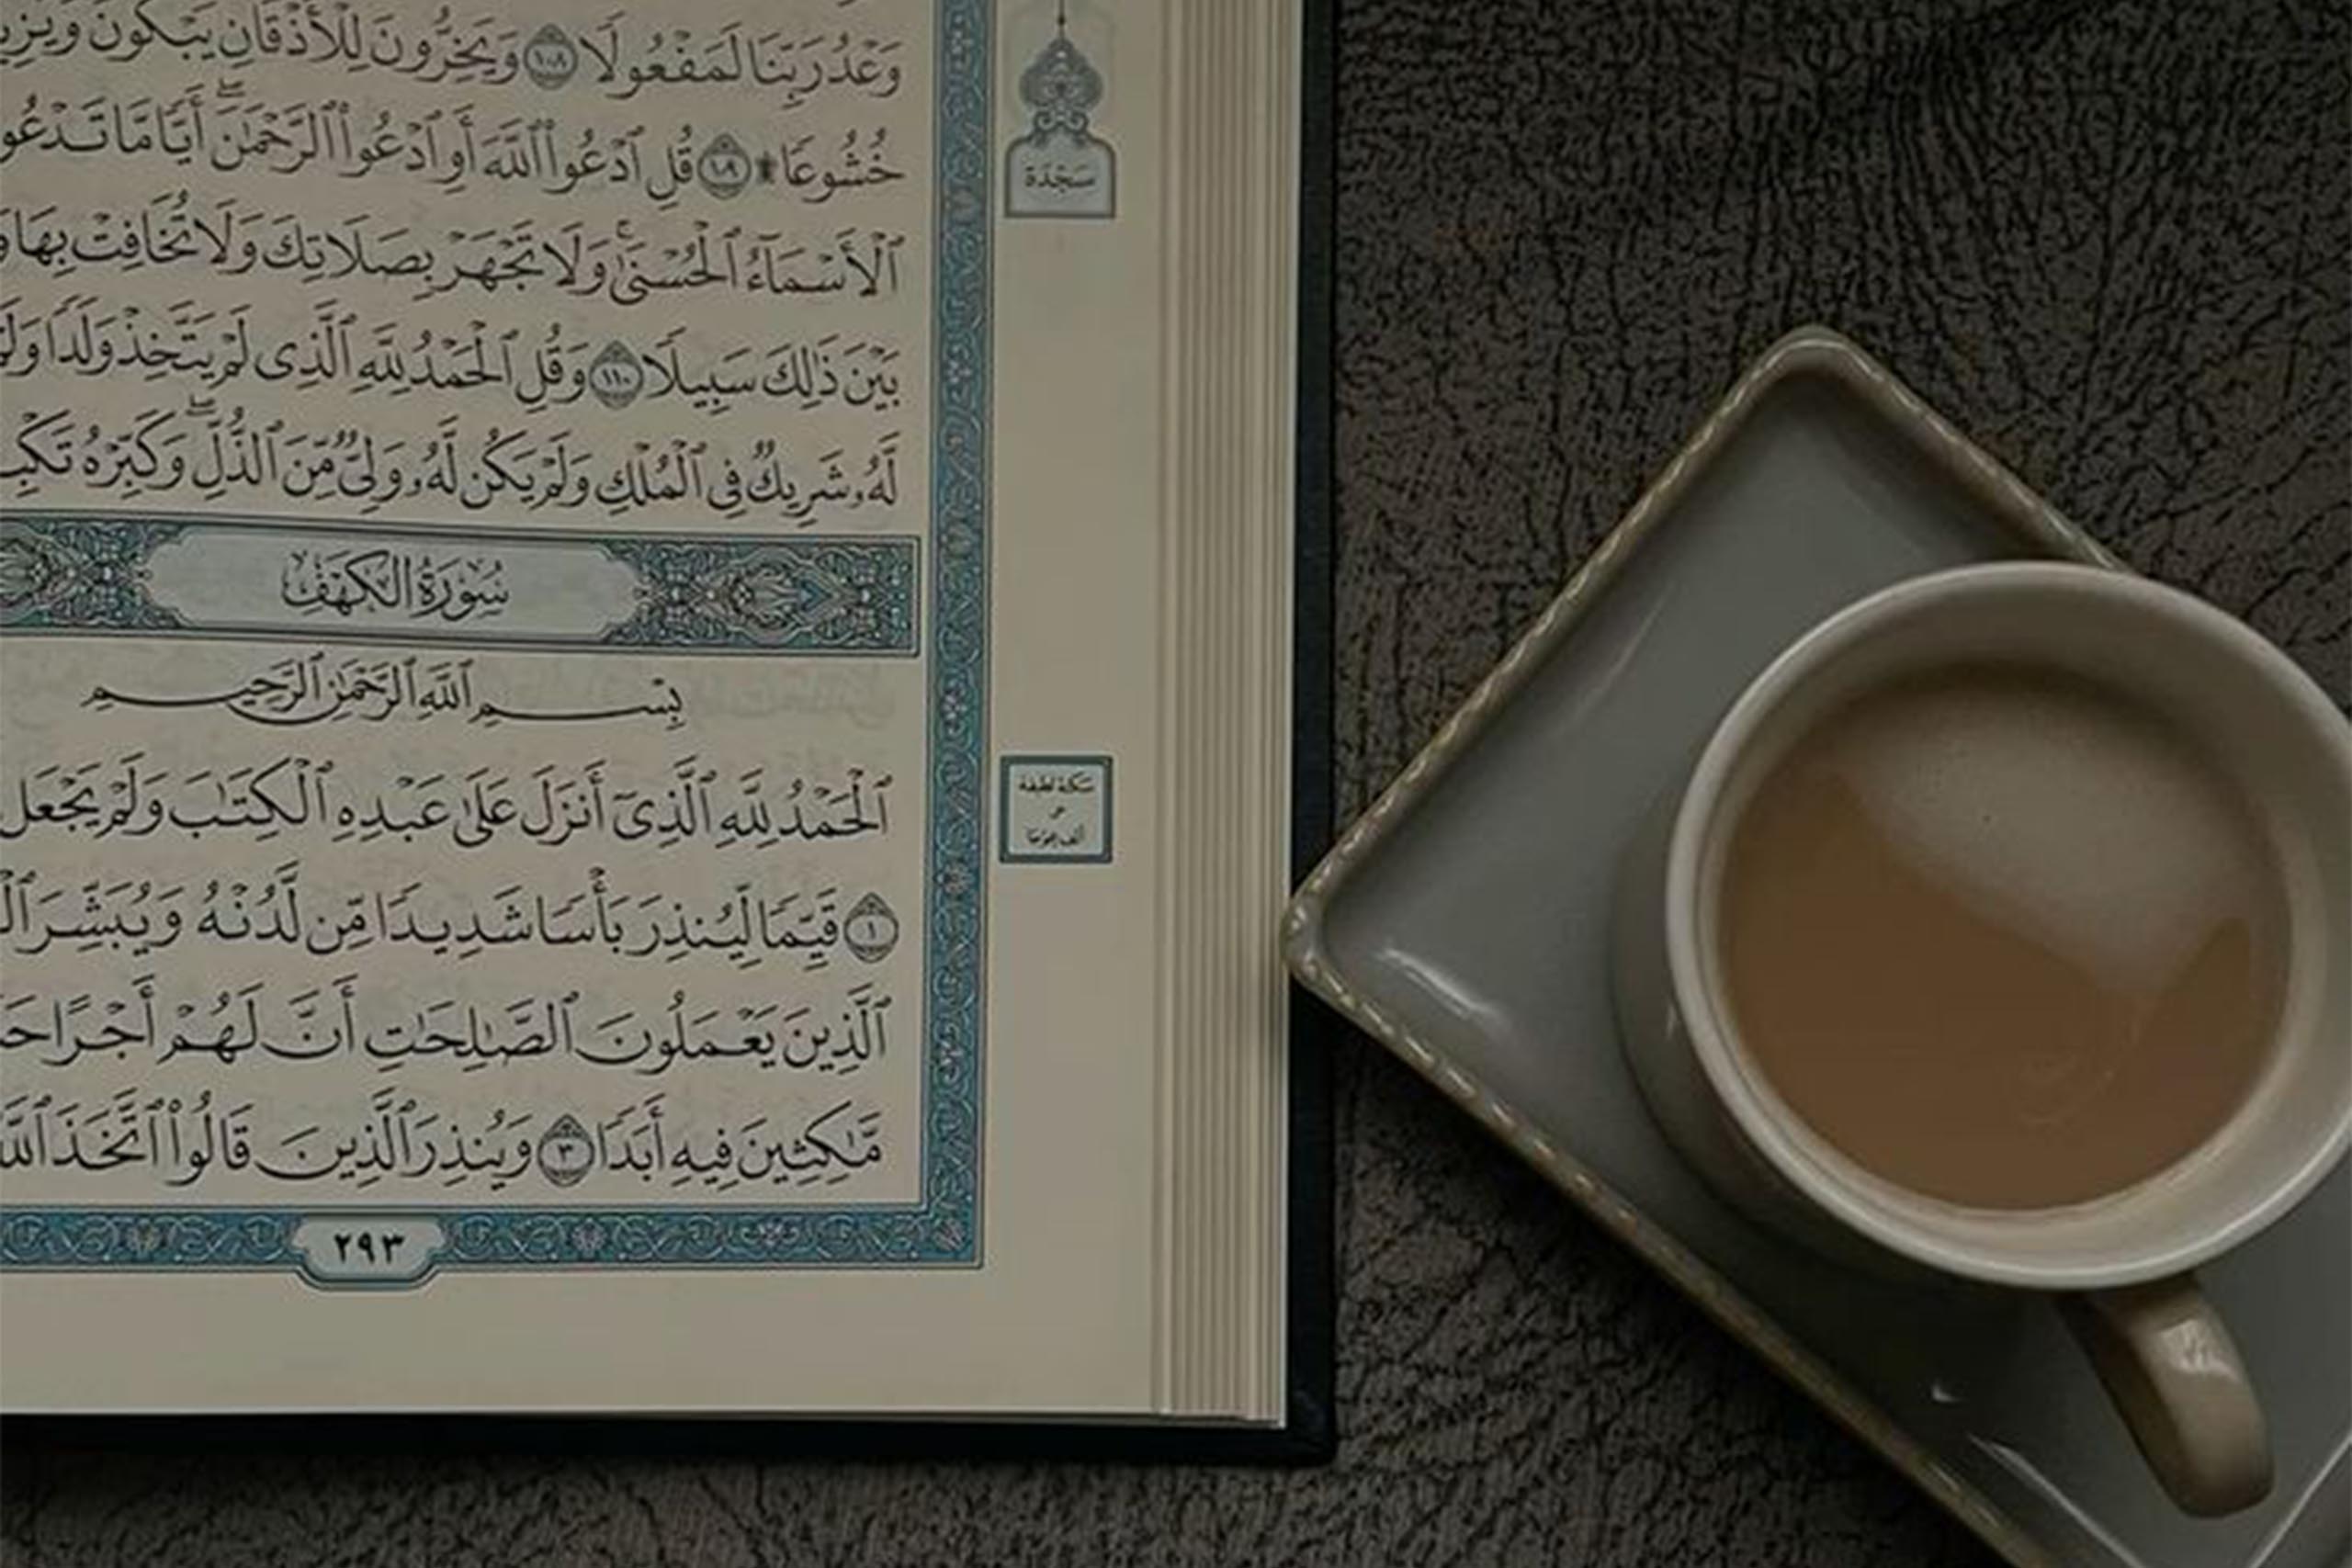 وَعْدُ رَبِّنَا لَمَفْعُولًا ١٠٨ وَيَخِرُّونَ لِلْأَذْقَانِ يَبْكُونَ
خُشُوعًا ۩ ١٠٩ قُلِ ٱدْعُوا۟ ٱللَّهَ أَوِ ٱدْعُوا۟ ٱلرَّحْمَٰنَ ۖ أَيًّا مَّا تَدْعُو
ٱلْأَسْمَآءُ ٱلْحُسْنَىٰ ۚ وَلَا تَجْهَرْ بِصَلَاتِكَ وَلَا تُخَافِتْ بِهَا
بَيْنَ ذَٰلِكَ سَبِيلًا ١١٠ وَقُلِ ٱلْحَمْدُ لِلَّهِ ٱلَّذِى لَمْ يَتَّخِذْ وَلَدًا
لَّهُۥ شَرِيكٌ فِى ٱلْمُلْكِ وَلَمْ يَكُن لَّهُۥ وَلِىٌّ مِّنَ ٱلذُّلِّ ۖ وَكَبِّرْهُ
سَجْدَة
سُورَةُ الكَهْفِ
بِسْمِ ٱللَّهِ ٱلرَّحْمَٰنِ ٱلرَّحِيمِ
ٱلْحَمْدُ لِلَّهِ ٱلَّذِىٓ أَنزَلَ عَلَىٰ عَبْدِهِ ٱلْكِتَٰبَ وَلَمْ يَجْعَل
١ قَيِّمًا لِّيُنذِرَ بَأْسًا شَدِيدًا مِّن لَّدُنْهُ وَيُبَشِّرَ
ٱلَّذِينَ يَعْمَلُونَ ٱلصَّٰلِحَٰتِ أَنَّ لَهُمْ أَجْرًا
مَّٰكِثِينَ فِيهِ أَبَدًا ٣ وَيُنذِرَ ٱلَّذِينَ قَالُوا۟ ٱتَّخَذَ ٱللَّهُ
سكتة لطيفة
على
ألف عوجا
٢٩٣